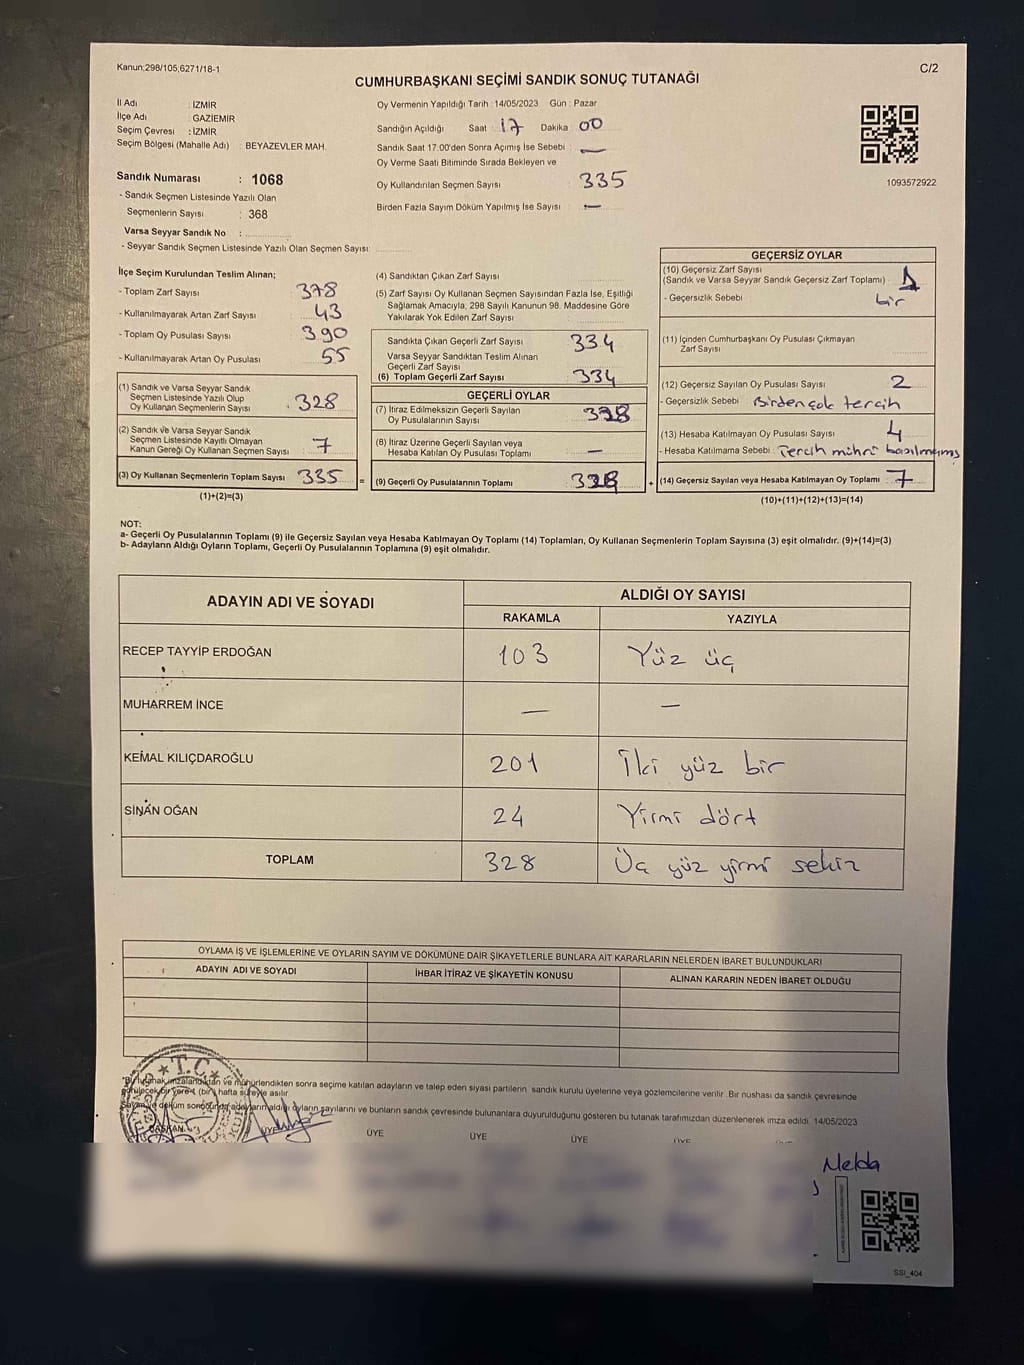 Kanun;298/105;6271/18-1
C/2
CUMHURBAŞKANI SEÇİMİ SANDIK SONUÇ TUTANAĞI
İl Adı : İZMİR
İlçe Adı : GAZİEMİR
Seçim Çevresi : İZMİR
Seçim Bölgesi (Mahalle Adı) : BEYAZEVLER MAH.
Sandık Numarası : 1068
- Sandık Seçmen Listesinde Yazılı Olan
Seçmenlerin Sayısı : 368
Varsa Seyyar Sandık No :
- Seyyar Sandık Seçmen Listesinde Yazılı Olan Seçmen Sayısı:
Oy Vermenin Yapıldığı Tarih : 14/05/2023 Gün : Pazar
Sandığın Açıldığı Saat : 17 Dakika : 00
Sandık Saat 17.00'den Sonra Açımış İse Sebebi : —
Oy Verme Saati Bitiminde Sırada Bekleyen ve
Oy Kullandırılan Seçmen Sayısı : 335
Birden Fazla Sayım Döküm Yapılmış İse Sayısı : —
1093572922
İlçe Seçim Kurulundan Teslim Alınan;
- Toplam Zarf Sayısı : 378
- Kullanılmayarak Artan Zarf Sayısı : 43
- Toplam Oy Pusulası Sayısı : 390
- Kullanılmayarak Artan Oy Pusulası : 55
(1) Sandık ve Varsa Seyyar Sandık
Seçmen Listesinde Yazılı Olup
Oy Kullanan Seçmenlerin Sayısı : 328
(2) Sandık ve Varsa Seyyar Sandık
Seçmen Listesinde Kayıtlı Olmayan
Kanun Gereği Oy Kullanan Seçmen Sayısı : 7
(3) Oy Kullanan Seçmenlerin Toplam Sayısı : 335 =
(1)+(2)=(3)
(4) Sandıktan Çıkan Zarf Sayısı
(5) Zarf Sayısı Oy Kullanan Seçmen Sayısından Fazla İse, Eşitliği
Sağlamak Amacıyla, 298 Sayılı Kanunun 98. Maddesine Göre
Yakılarak Yok Edilen Zarf Sayısı
Sandıkta Çıkan Geçerli Zarf Sayısı : 334
Varsa Seyyar Sandıktan Teslim Alınan
Geçerli Zarf Sayısı
(6) Toplam Geçerli Zarf Sayısı : 334
GEÇERLİ OYLAR
(7) İtiraz Edilmeksizin Geçerli Sayılan
Oy Pusulalarının Sayısı : 328
(8) İtiraz Üzerine Geçerli Sayılan veya
Hesaba Katılan Oy Pusulası Toplamı : —
(9) Geçerli Oy Pusulalarının Toplamı : 328 +
GEÇERSİZ OYLAR
(10) Geçersiz Zarf Sayısı
(Sandık ve Varsa Seyyar Sandık Geçersiz Zarf Toplamı) : 1
- Geçersizlik Sebebi bir
(11) İçinden Cumhurbaşkanı Oy Pusulası Çıkmayan
Zarf Sayısı
(12) Geçersiz Sayılan Oy Pusulası Sayısı : 2
- Geçersizlik Sebebi : Birden çok tercih
(13) Hesaba Katılmayan Oy Pusulası Sayısı : 4
- Hesaba Katılmama Sebebi : Tercih mührü basılmamış
(14) Geçersiz Sayılan veya Hesaba Katılmayan Oy Toplamı : 7
(10)+(11)+(12)+(13)=(14)
NOT:
a- Geçerli Oy Pusulalarının Toplamı (9) ile Geçersiz Sayılan veya Hesaba Katılmayan Oy Toplamı (14) Toplamları, Oy Kullanan Seçmenlerin Toplam Sayısına (3) eşit olmalıdır. (9)+(14)=(3)
b- Adayların Aldığı Oyların Toplamı, Geçerli Oy Pusulalarının Toplamına (9) eşit olmalıdır.
ADAYIN ADI VE SOYADI ALDIĞI OY SAYISI
RAKAMLA YAZIYLA
RECEP TAYYİP ERDOĞAN 103 Yüz üç
MUHARREM İNCE — —
KEMAL KILIÇDAROĞLU 201 İki yüz bir
SİNAN OĞAN 24 Yirmi dört
TOPLAM 328 Üç yüz yirmi sekiz
OYLAMA İŞ VE İŞLEMLERİNE VE OYLARIN SAYIM VE DÖKÜMÜNE DAİR ŞİKAYETLERLE BUNLARA AİT KARARLARIN NELERDEN İBARET BULUNDUKLARI
ADAYIN ADI VE SOYADI İHBAR İTİRAZ VE ŞİKAYETİN KONUSU ALINAN KARARIN NEDEN İBARET OLDUĞU
T.C.
imzalandıktan ve mühürlendikten sonra seçime katılan adayların ve talep eden siyasi partilerin sandık kurulu üyelerine veya gözlemcilerine verilir. Bir nüshası da sandık çevresinde
görülecek bir yere 1 (bir) hafta süreyle asılır.
Sayım ve döküm sonucunda adayların aldığı oyların sayılarını ve bunların sandık çevresinde bulunanlara duyurulduğunu gösteren bu tutanak tarafımızdan düzenlenerek imza edildi. 14/05/2023
BAŞKAN ÜYE ÜYE ÜYE ÜYE ÜYE
Melda
SSI_404